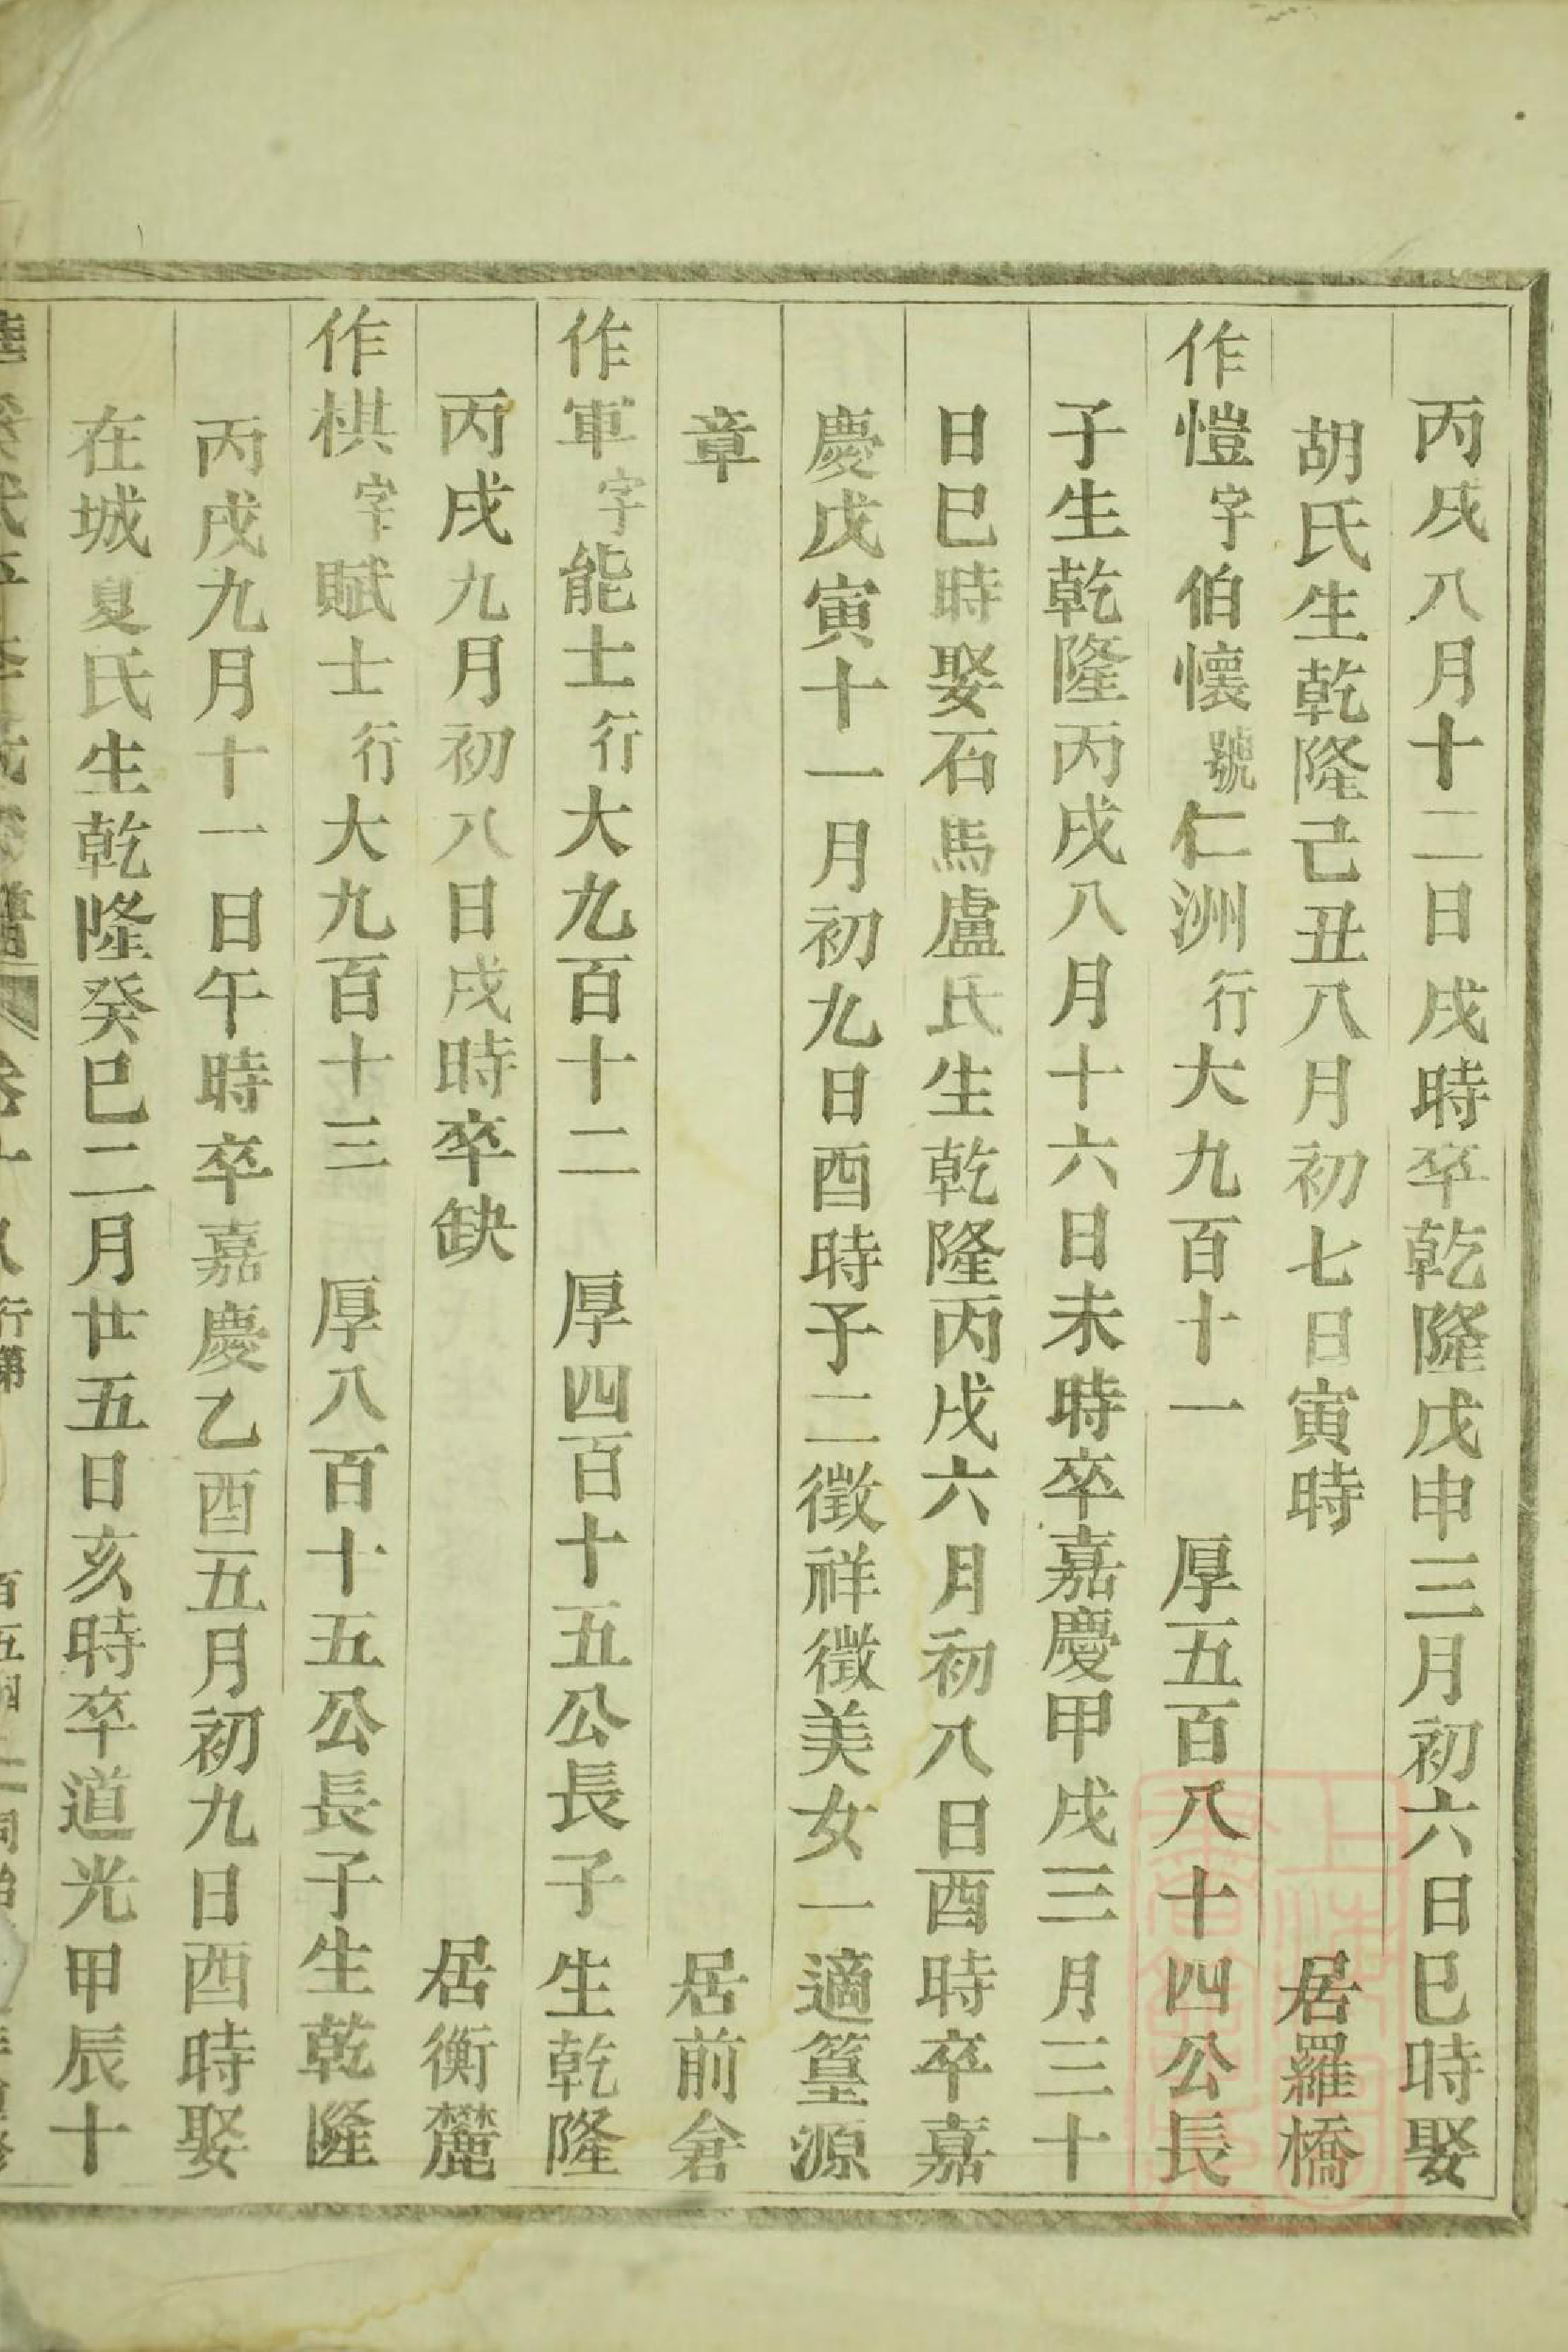 丙戌八月十二日戌時卒乾隆戊申三月初六日巳時娶
胡氏生乾隆己丑八月初七日寅時 居羅橋
作愷字伯懷號仁洲行大九百十一 厚五百八十四公長
子生乾隆丙戌八月十六日未時卒嘉慶甲戌三月三十
日巳時娶石馬盧氏生乾隆丙戌六月初八日酉時卒嘉
慶戊寅十一月初九日酉時子二徵祥徵美女一適篁源
章 居前倉
作軍字能士行大九百十二 厚四百十五公長子生乾隆
丙戌九月初八日戌時卒缺 居衡麓
作棋字賦士行大九百十三 厚八百十五公長子生乾隆
丙戌九月十一日午時卒嘉慶乙酉五月初九日酉時娶
在城夏氏生乾隆癸巳二月廿五日亥時卒道光甲辰十